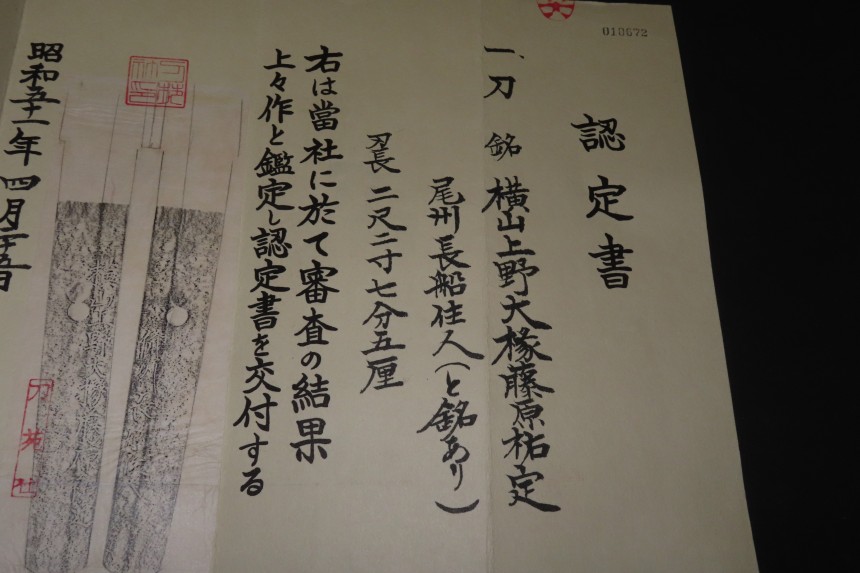 010672
認定書
一、刀 銘 横山上野大掾藤原祐定
尾州長船住人（と銘あり）
刃長 二尺二寸七分五厘
右は當社に於て審査の結果
上々作と鑑定し認定書を交付する
昭和五十一年四月二十五日
刀苑社